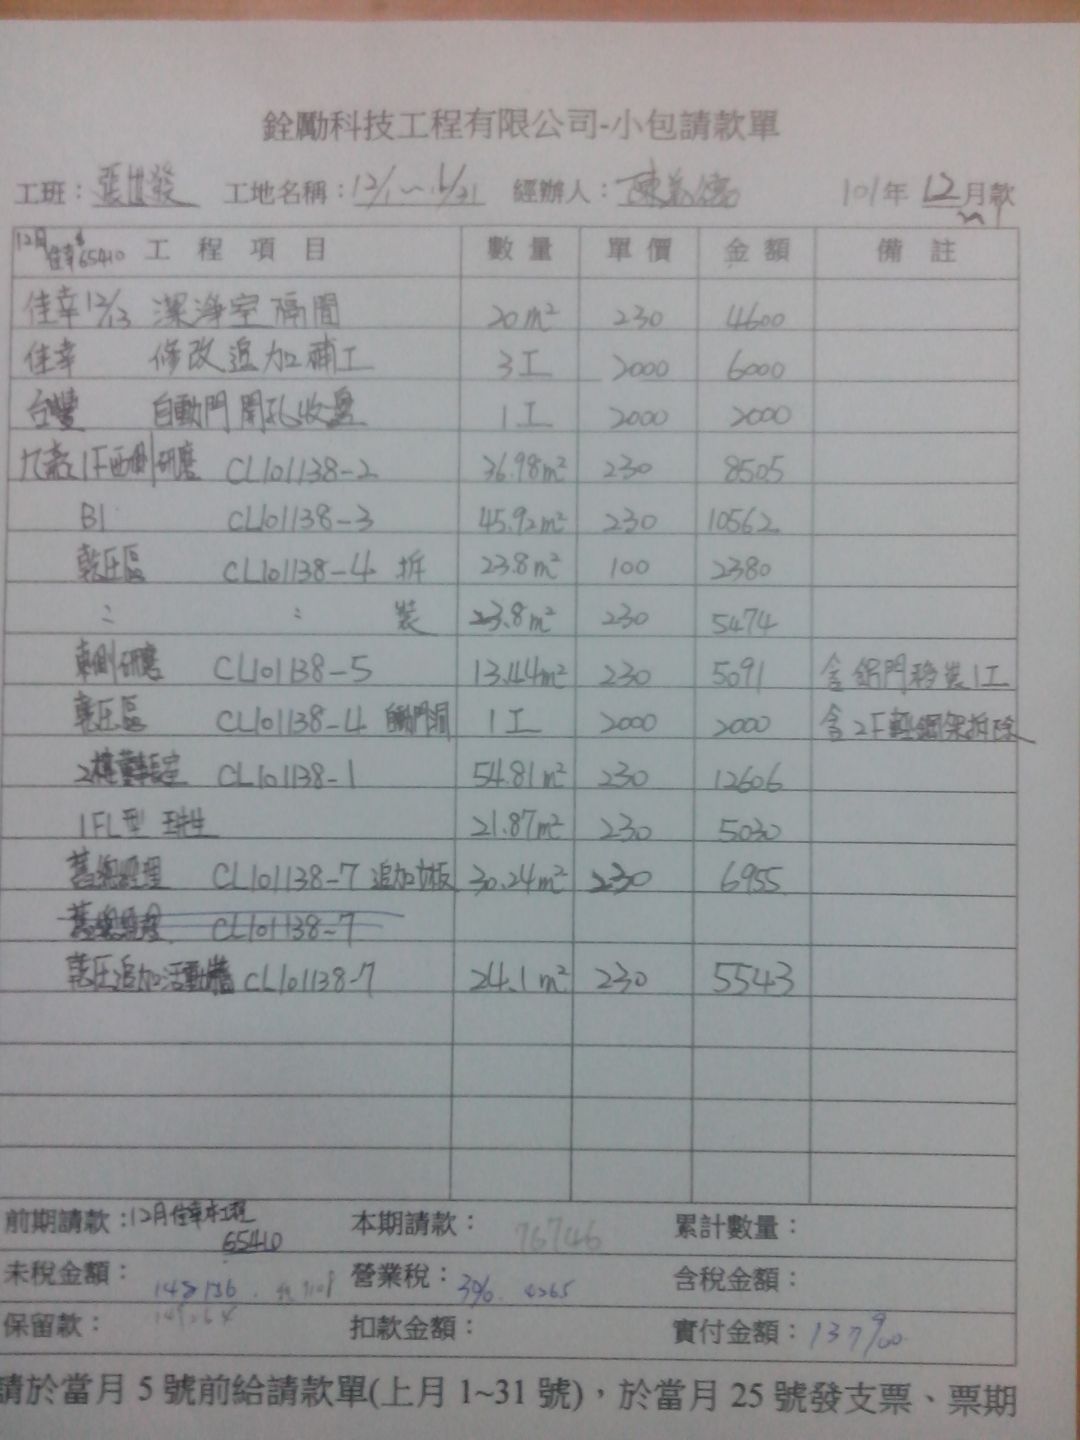 銓勵科技工程有限公司-小包請款單
工班： 工地名稱：12/1~12/31 經辦人： 101年 12月款
12月佳幸$65410 工程項目 數量 單價 金額 備註
佳幸12/13 潔淨室隔間 20m² 230 4600
佳幸 修改追加補工 3工 2000 6000
台豐 自動門開孔收邊 1工 2000 2000
1F西側研磨 CL101138-2 36.98m² 230 8505
B1 CL101138-3 45.92m² 230 10562
乾压區 CL101138-4 拆 23.8m² 100 2380
〃 〃 裝 23.8m² 230 5474
東側研磨 CL101138-5 13.44m² 230 5091 含鋁門移裝1工
乾压區 CL101138-4 自動門洞 1工 2000 2000 含2F輕鋼架拆除
2樓 CL101138-1 54.81m² 230 12606
1FL型 21.87m² 230 5030
舊總經理 CL101138-7 追加立板 30.24m² 230 6955
舊總經理 CL101138-7
乾压追加活動牆 CL101138-7 24.1m² 230 5543
前期請款：12月佳幸本工程 本期請款：76746 累計數量：
65410
未稅金額： 營業稅：3% 4265 含稅金額：
保留款： 扣款金額： 實付金額：137900
請於當月5號前給請款單(上月1~31號)，於當月25號發支票、票期